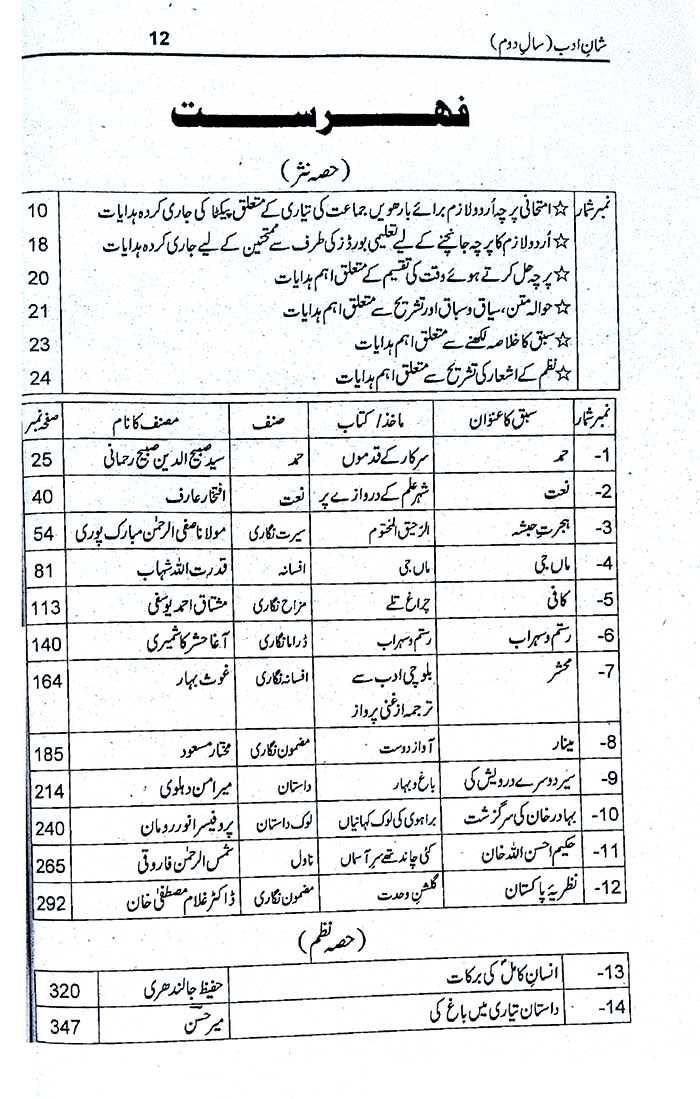 شانِ ادب (سالِ دوم) 12
فہرست
(حصہ نثر)
نمبر شمار ☆ امتحانی پرچہ اُردو لازم برائے بارھویں جماعت کی تیاری کے متعلق پیکٹا کی جاری کردہ ہدایات 10
☆ اُردو لازم کا پرچہ جانچنے کے لیے تعلیمی بورڈز کی طرف سے ممتحنین کے لیے جاری کردہ ہدایات 18
☆ پرچہ حل کرتے ہوئے وقت کی تقسیم کے متعلق اہم ہدایات 20
☆ حوالہ متن، سیاق و سباق اور تشریح سے متعلق اہم ہدایات 21
☆ سبق کا خلاصہ لکھنے سے متعلق اہم ہدایات 23
☆ نظم کے اشعار کی تشریح سے متعلق اہم ہدایات 24
نمبر شمار سبق کا عنوان ماخذ/کتاب صنف مصنف کا نام صفحہ نمبر
1- حمد سرکار کے قدموں حمد سید صبیح الدین صبیح رحمانی 25
2- نعت شہر علم کے دروازے پر نعت افتخار عارف 40
3- ہجرتِ حبشہ الرحیق المختوم سیرت نگاری مولانا صفی الرحمٰن مبارک پوری 54
4- ماں جی ماں جی افسانہ قدرت اللہ شہاب 81
5- کافی چراغ تلے مزاح نگاری مشتاق احمد یوسفی 113
6- رستم و سہراب رستم و سہراب ڈراما نگاری آغا حشر کاشمیری 140
7- محشر بلوچی ادب سے افسانہ نگاری غوث بہار 164
ترجمہ از غنی پرواز
8- مینار آواز دوست مضمون نگاری مختار مسعود 185
9- سیر دوسرے درویش کی باغ و بہار داستان میر امن دہلوی 214
10- بہادر خان کی سرگزشت براہوی کی لوک کہانیاں لوک داستان پروفیسر انور رومان 240
11- حکیم احسن اللہ خان کئی چاند تھے سرِ آسماں ناول شمس الرحمٰن فاروقی 265
12- نظریۂ پاکستان گلشنِ وحدت مضمون نگاری ڈاکٹر غلام مصطفیٰ خان 292
(حصہ نظم)
13- انسانِ کاملؐ کی برکات حفیظ جالندھری 320
14- داستان تیاری میں باغ کی میر حسن 347